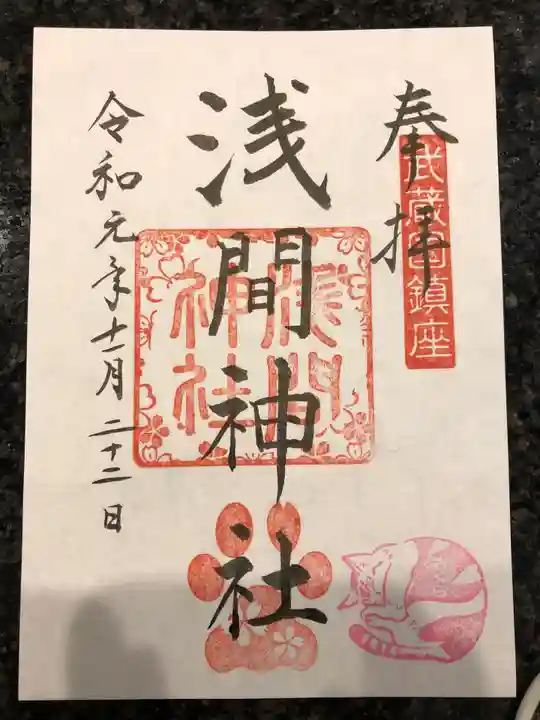 奉拝
武蔵国鎮座
浅間神社
浅間
神社
令和元年十一月二十二日